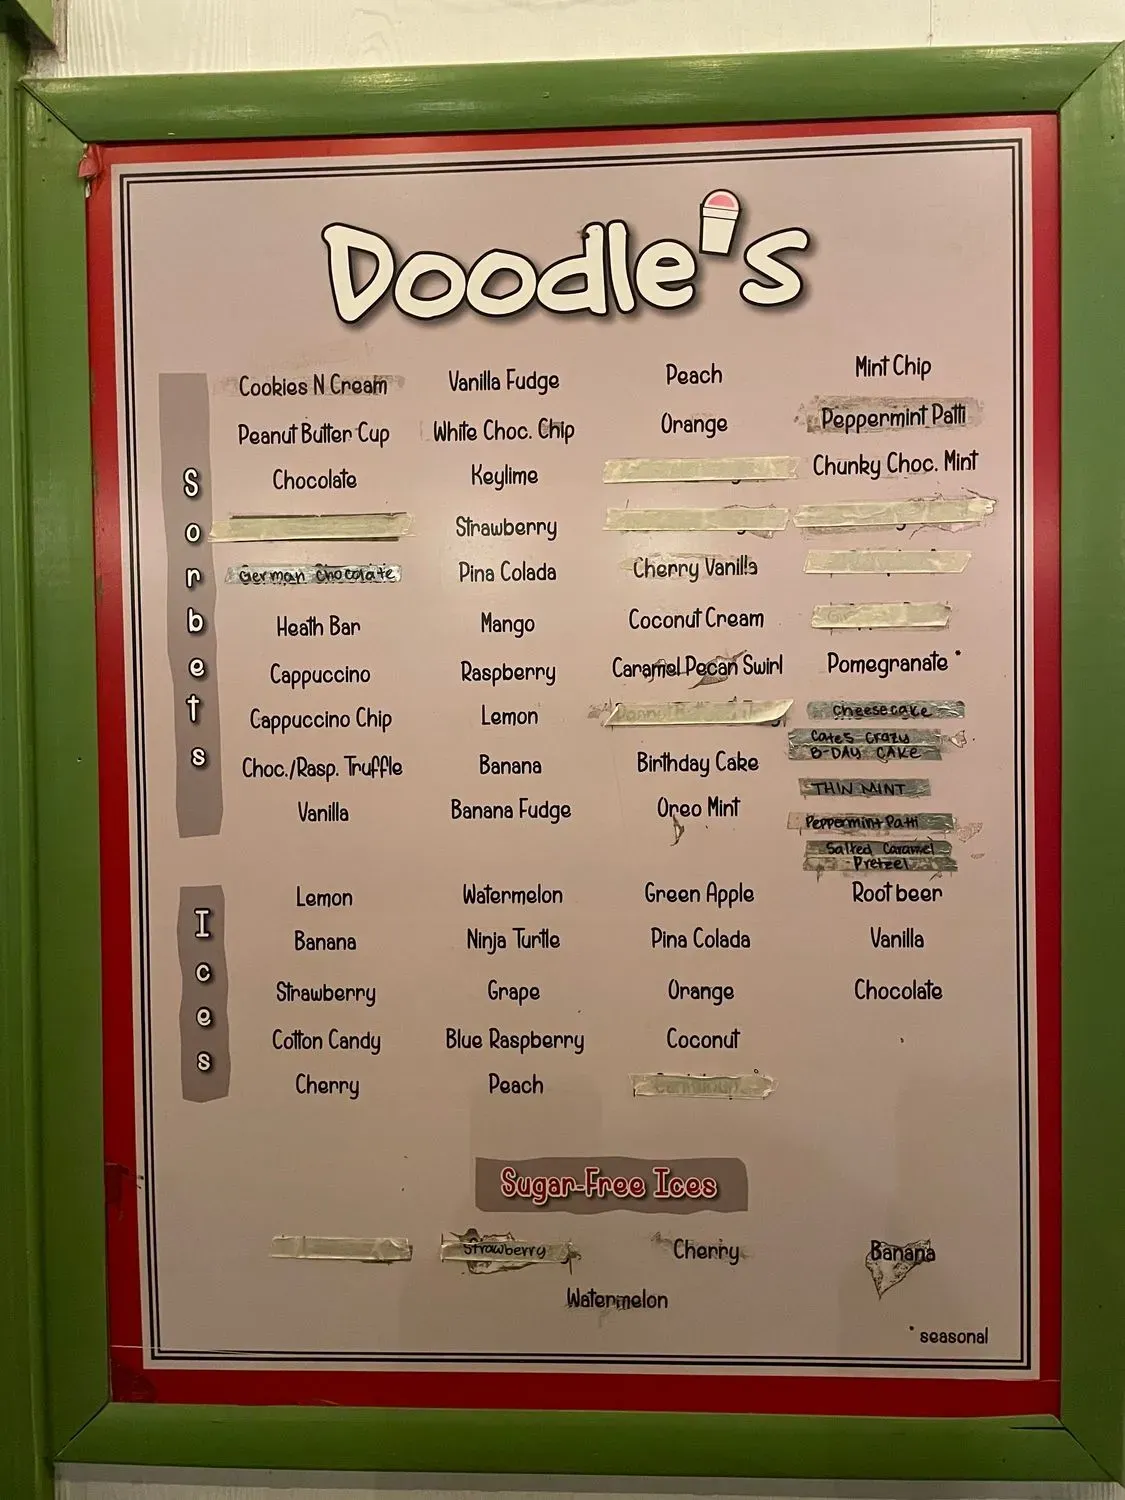 Doodle's
Sorbets
Cookies N Cream
Peanut Butter Cup
Chocolate
German Chocolate
Heath Bar
Cappuccino
Cappuccino Chip
Choc./Rasp. Truffle
Vanilla
Vanilla Fudge
White Choc. Chip
Keylime
Strawberry
Pina Colada
Mango
Raspberry
Lemon
Banana
Banana Fudge
Peach
Orange
Cherry Vanilla
Coconut Cream
Caramel Pecan Swirl
Birthday Cake
Oreo Mint
Mint Chip
Peppermint Patti
Chunky Choc. Mint
Pomegranate *
Cheesecake
Cates Crazy
B-DAY CAKE
THIN MINT
Peppermint Patti
Salted Caramel
Pretzel
Ices
Lemon
Banana
Strawberry
Cotton Candy
Cherry
Watermelon
Ninja Turtle
Grape
Blue Raspberry
Peach
Green Apple
Pina Colada
Orange
Coconut
Root beer
Vanilla
Chocolate
Sugar-Free Ices
Strawberry
Cherry
Banana
Watermelon
* seasonal